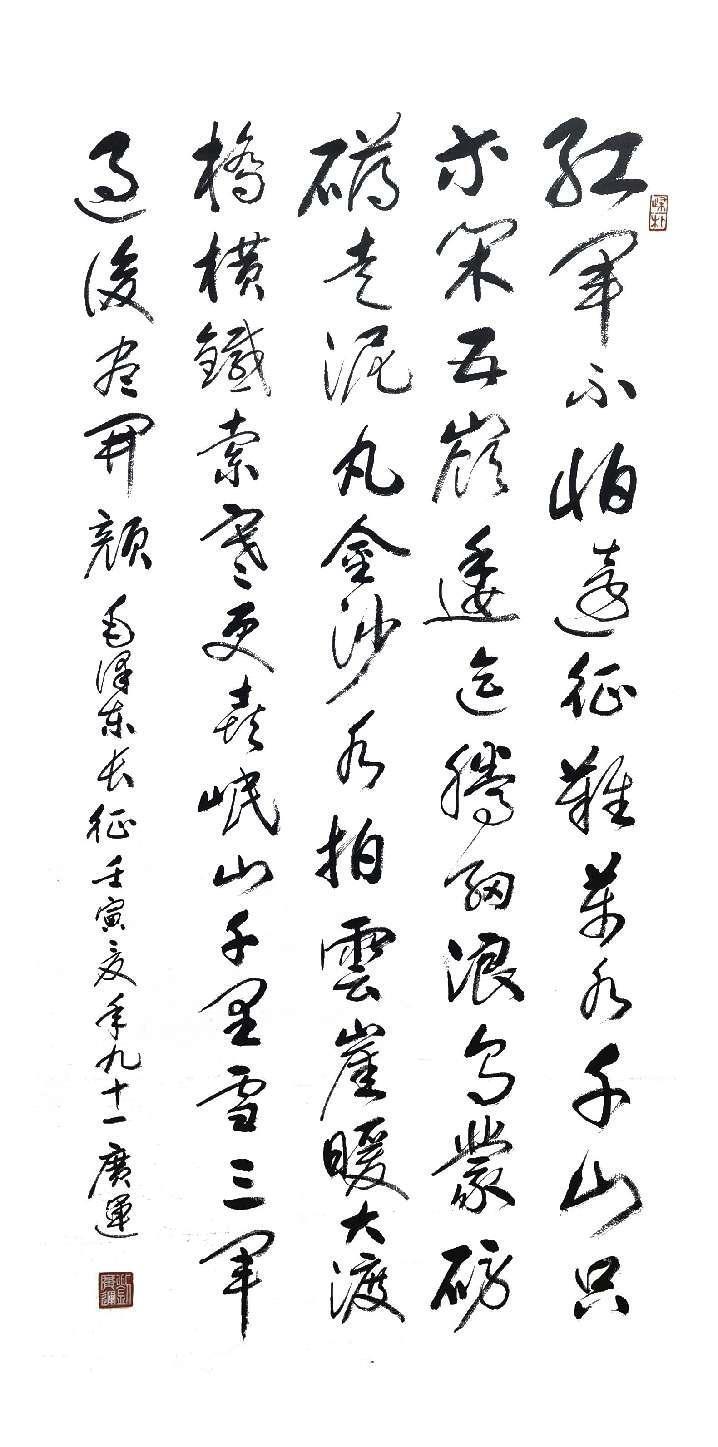 紅軍不怕遠征難萬水千山只
等閑五嶺逶迤騰細浪烏蒙磅
礴走泥丸金沙水拍雲崖暖大渡
橋横鐵索寒更喜岷山千里雪三軍
過後盡開顔 毛澤東長征壬寅夏年九十一廣運